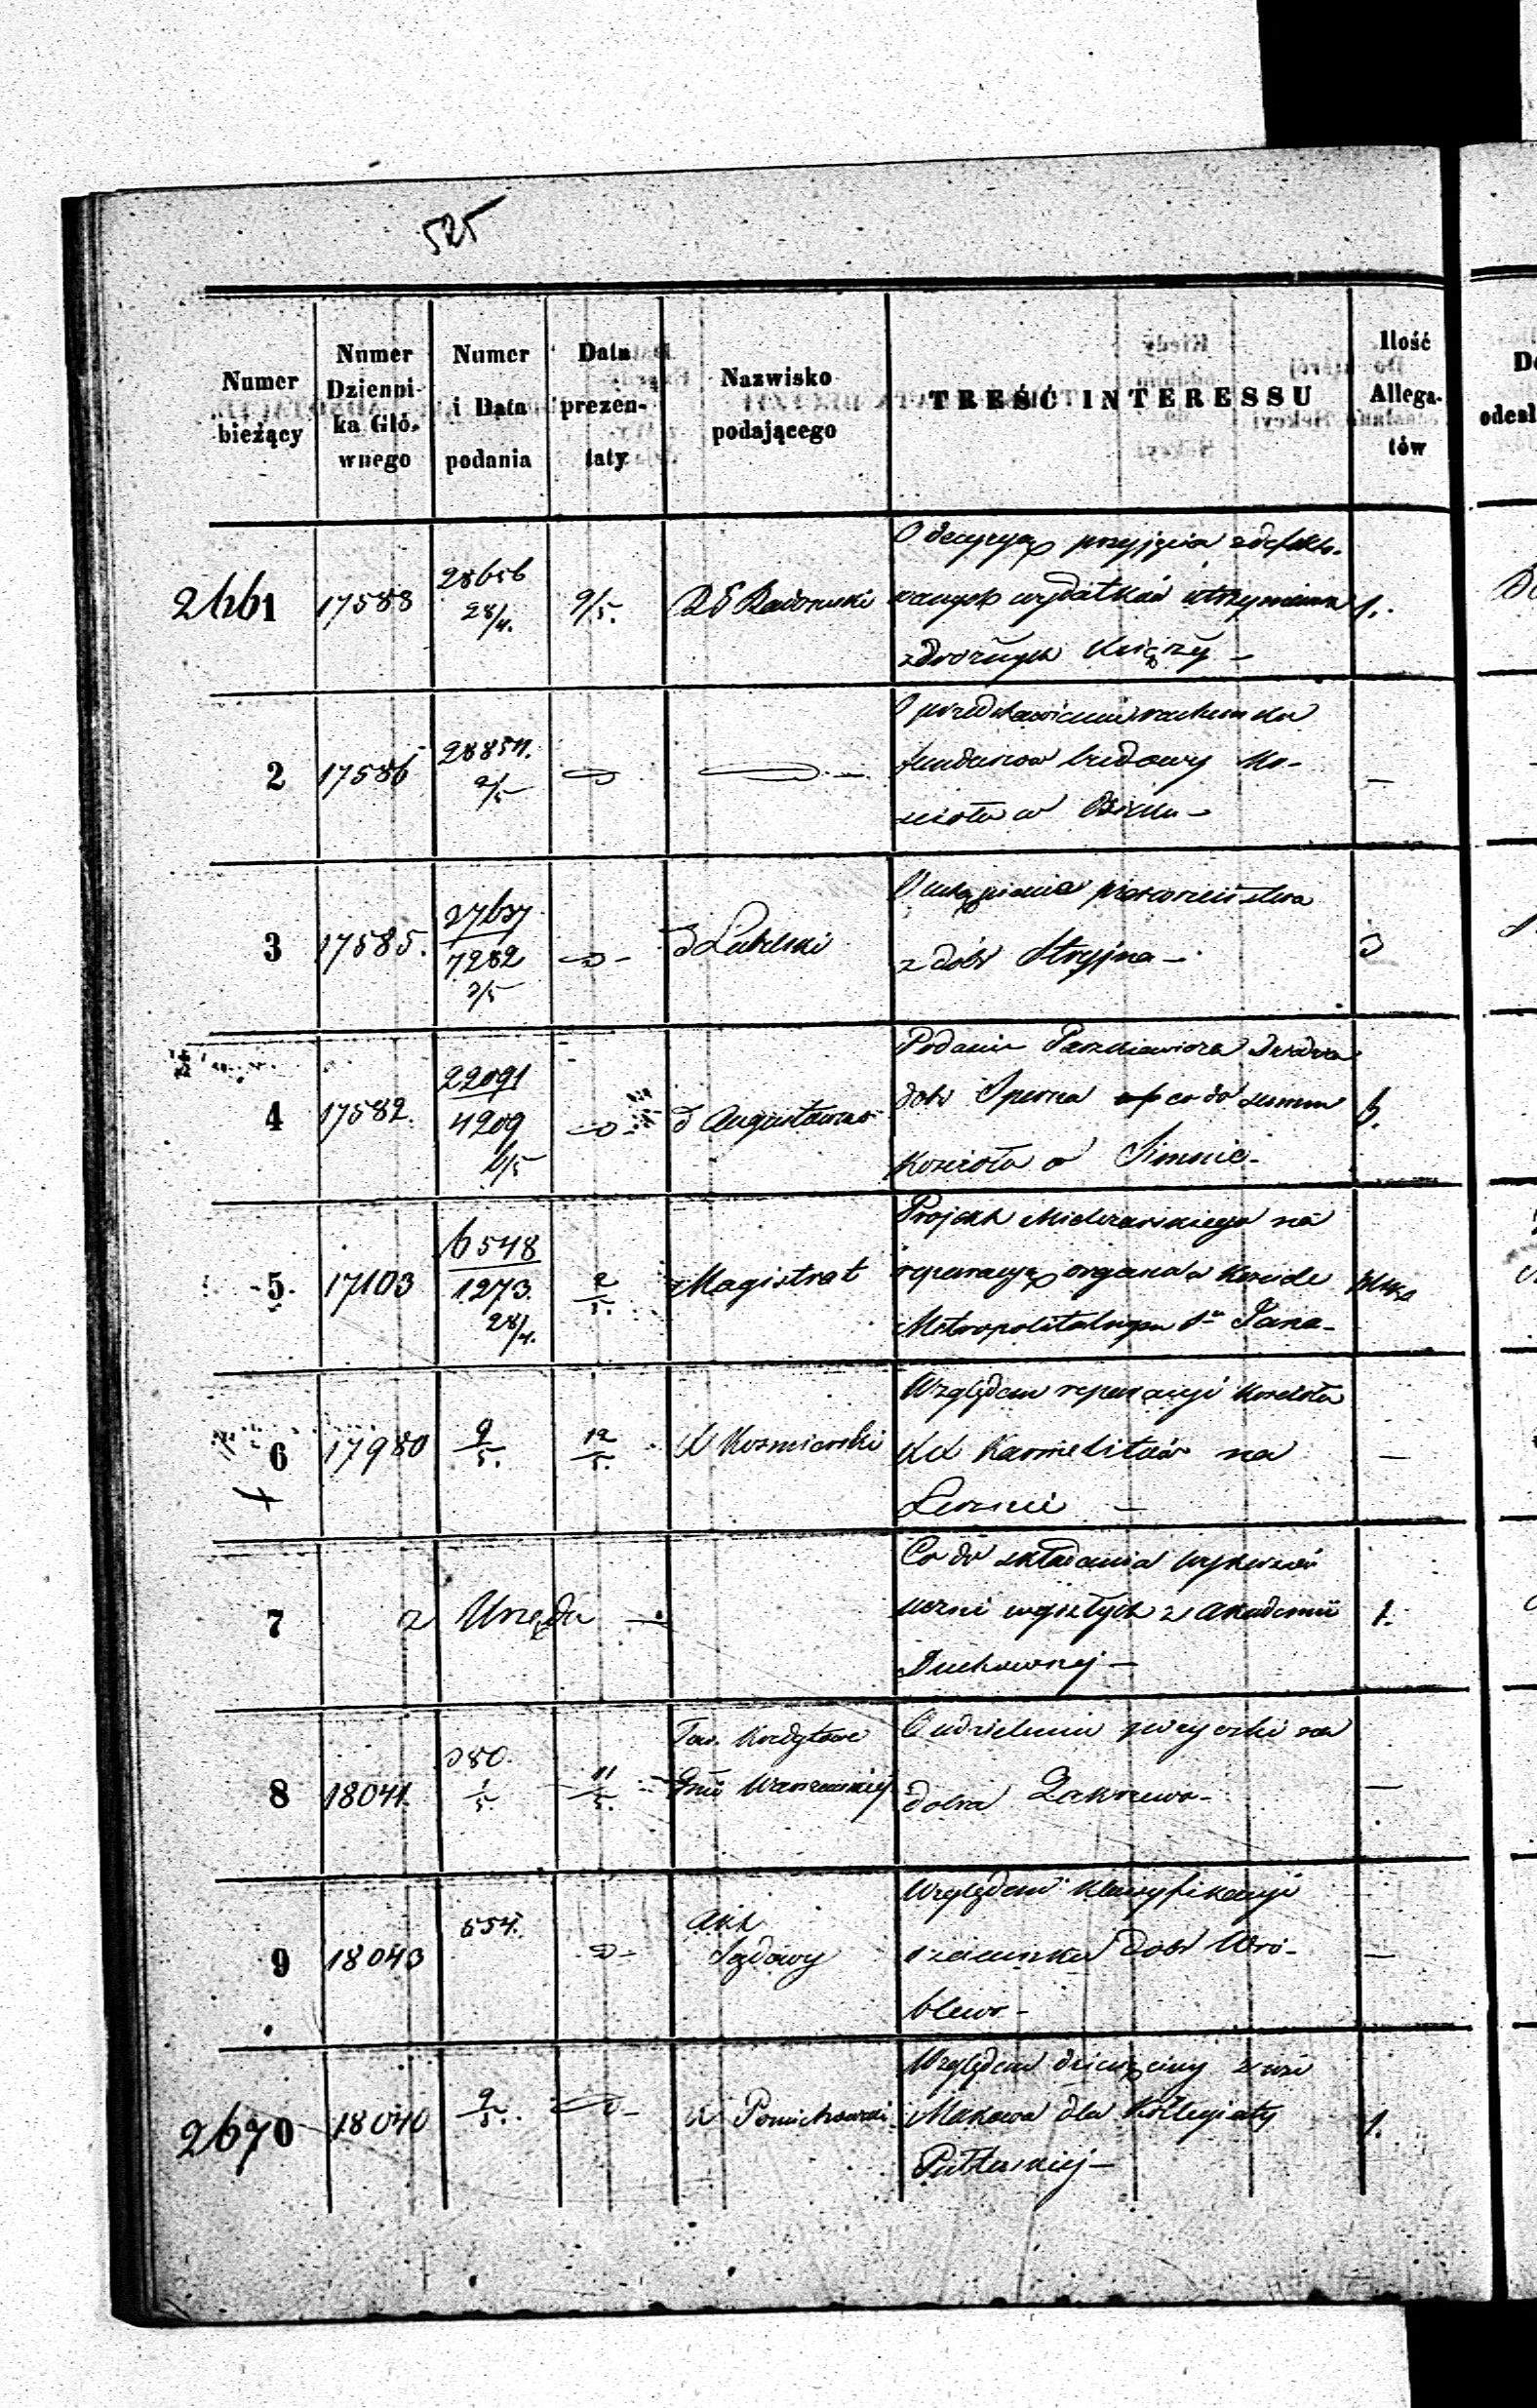 525
Numer bieżący
Numer Dzienni-ka Głó-wnego
Numer i Data podania
Data prezen-taty
Nazwisko podającego
TREŚĆ INTERESSU
Ilość Allega-tów
2661 17588 28656 28/4. 9/5. Radomski 1.
O decyzyą przyjęcia zdefekto-
wanych wydatków utrzymania
zdrożnych Księży –
2 17586 28854. 2/5 –
O przedstawienie rachunku
funduszów budowy Ko-
scioła w
3 17585. 27637 7282 3/5 Lubelski 3
pierwszeństwa
z dóbr Stryjna –
4 17582. 22091 4209 6/5 Augustowski 6.
Podanie Paszkiewicza
dóbr co do summ
Koscioła w Simnie –
5 17103 6548 1273. 28/4. 2/5. Magistrat
Projekt na
reperacyą organu w Kosciele
Metropolitalnym Sgo Jana –
6 17980 9/5. 12/5. X Kozmierski –
Względem reperacyi Koscioła
XX Karmelitów na
Lesznie –
7 z Urzędu – 1.
Co do składania wykazów
uczni wyszłych z Akademii
Duchownej –
8 18041. 380. 1/5. 11/5. Tow. Kredytowe Gnii Warszawskiej –
O udzieleniu pożyczki na
dobra Zakrzewo –
9 18043 654. Akt Sądowy –
Względem klassyfikacyi
szacunku dóbr Wró-
blewo –
2670 18040 9/5. X 1.
Względem dziesięciny z wsi
Makowa dla Kollegiaty
Pułtuskiej –